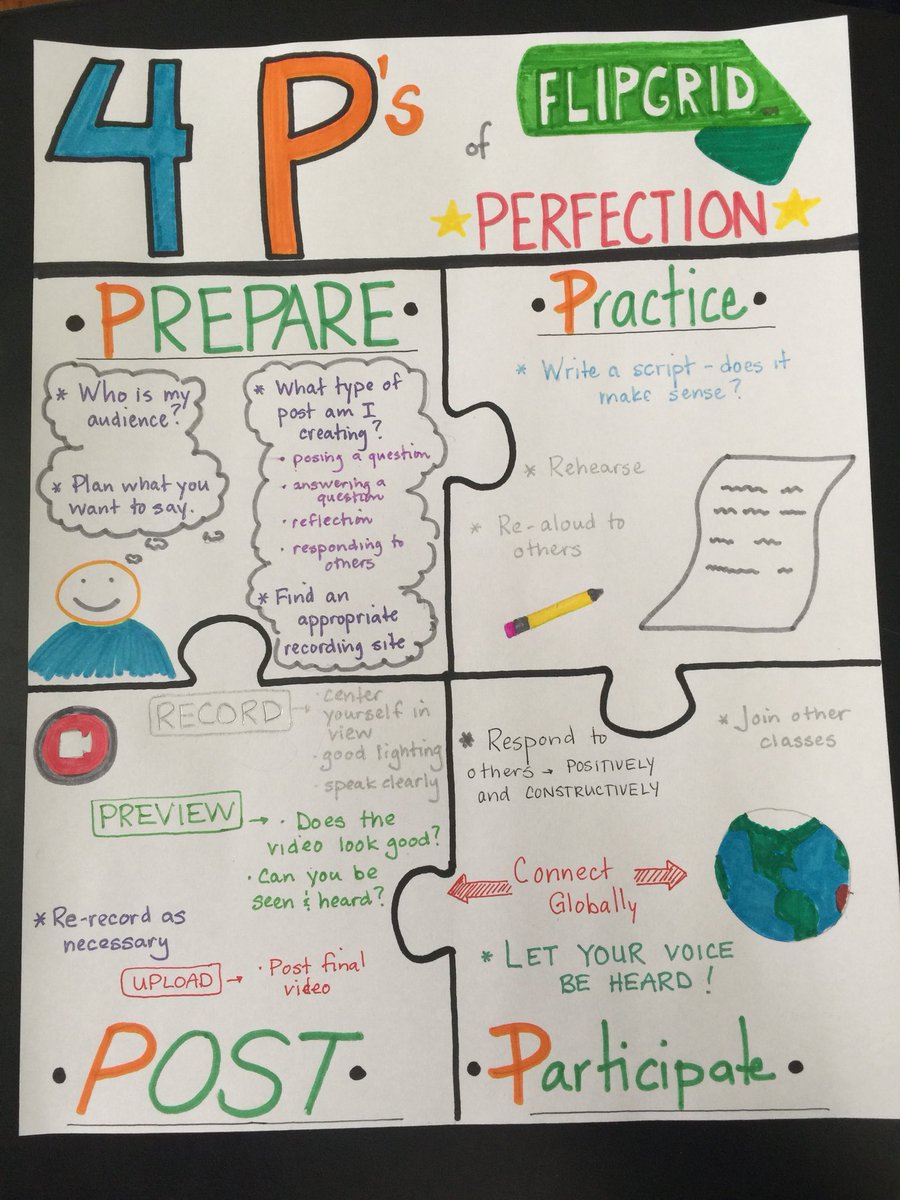 4 P's
of
FLIPGRID
PERFECTION
• PREPARE •
* Who is my
audience?
* Plan what you
want to say.
* What type of
post am I
creating?
• posing a question
• answering a
question
• reflection
• responding to
others
* Find an
appropriate
recording site
• Practice •
* Write a script - does it
make sense?
* Rehearse
* Re-aloud to
others
RECORD →
• center
yourself in
view
• good lighting
• speak clearly
PREVIEW →
• Does the
video look good?
• Can you be
seen & heard?
* Re-record as
necessary
UPLOAD →
• Post final
video
• POST •
* Respond to
others → POSITIVELY
and CONSTRUCTIVELY
* Join other
classes
Connect
Globally
* LET YOUR VOICE
BE HEARD!
• Participate •